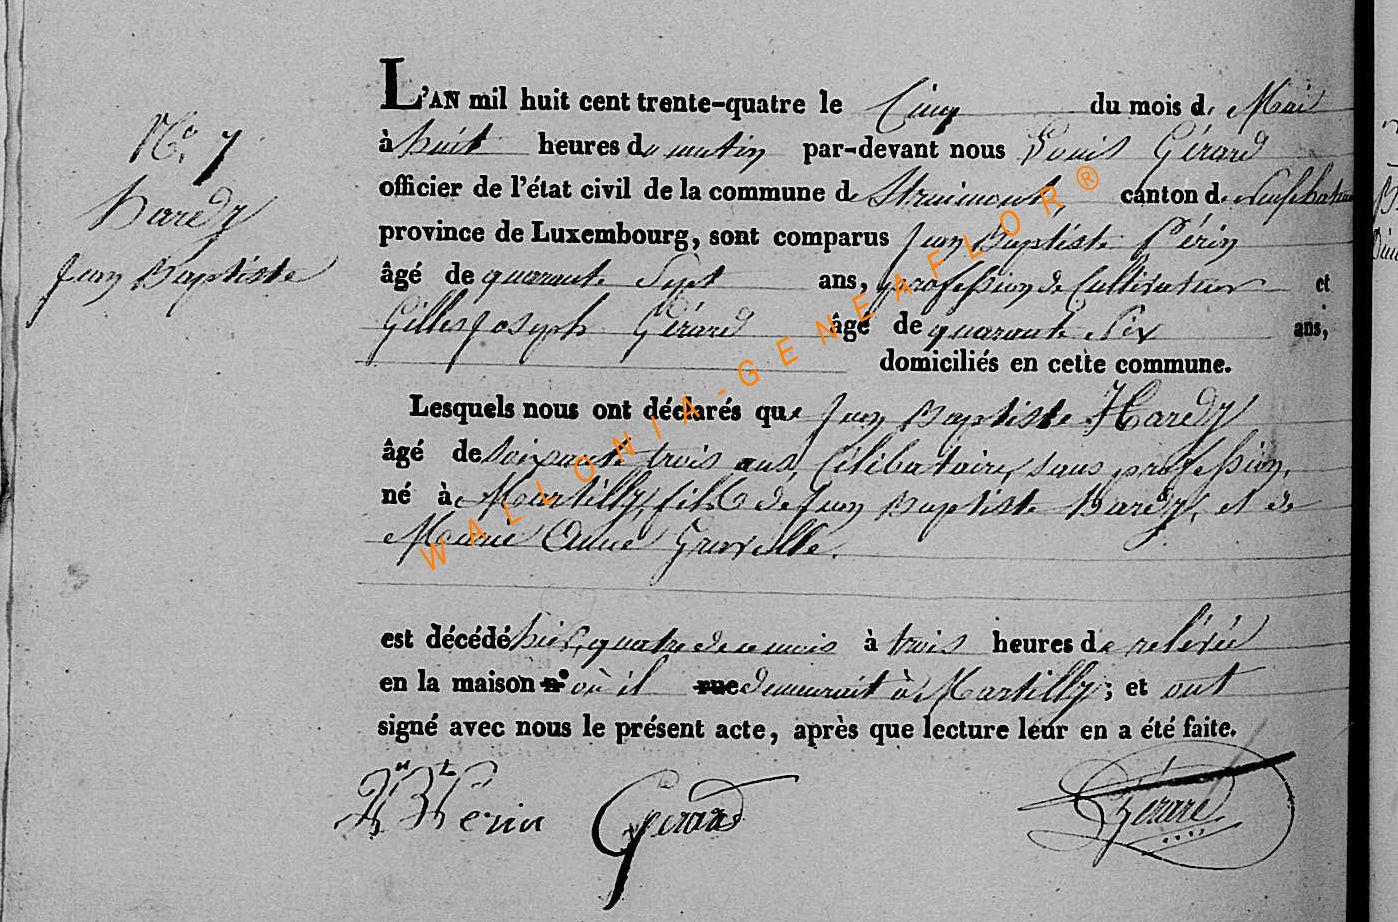 N.° 7
Hardy
Jean Baptiste
L'AN mil huit cent trente-quatre le Cinq du mois de Mai
à huit heures du matin par-devant nous Louis Gérard
officier de l'état civil de la commune de Straimont, canton de Neufchateau
province de Luxembourg, sont comparus Jean Baptiste Périn
âgé de quarante Sept ans, profession de Cultivateur et
Gilles Joseph Gérard âgé de quarante Six ans,
domiciliés en cette commune.
Lesquels nous ont déclarés que Jean Baptiste Hardy
âgé de soixante trois ans, Célibataire, sans profession,
né à Martilly, fils de Jean Baptiste Hardy, et de
Marie Anne
est décédé hier, quatre de ce mois à trois heures de relevée
en la maison n° où il rue demeurait à Martilly; et ont
signé avec nous le présent acte, après que lecture leur en a été faite.
Périn Gérard Gérard
WALLONIA-GENEAFLOR®